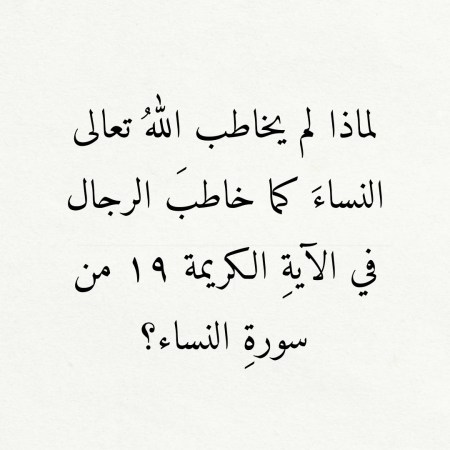 لماذا لم يخاطب اللهُ تعالى
النساءَ كما خاطبَ الرجال
في الآيةِ الكريمة ١٩ من
سورةِ النساء؟